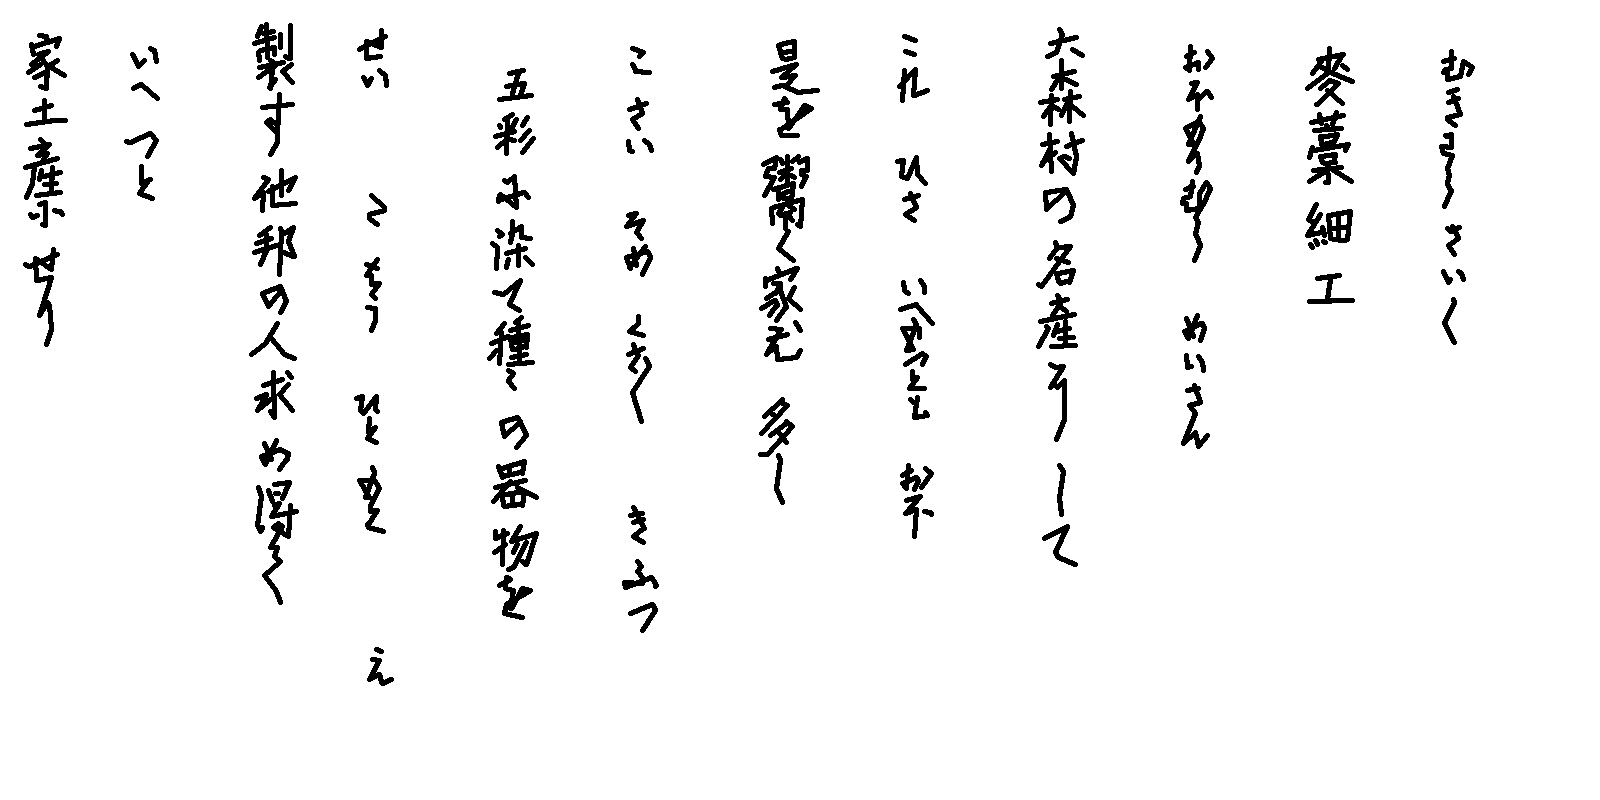 むきわらさいく
麥藁細工
おほもりむら めいさん
大森村の名産にして
これ ひさ いへもつとも おほ
是を鬻く家尤多し
こさい そめ くさ〱 きふつ
五彩に染て種々の器物を
せい たはう ひともと え
製す他邦の人求め得て
いへつと
家土産にせり